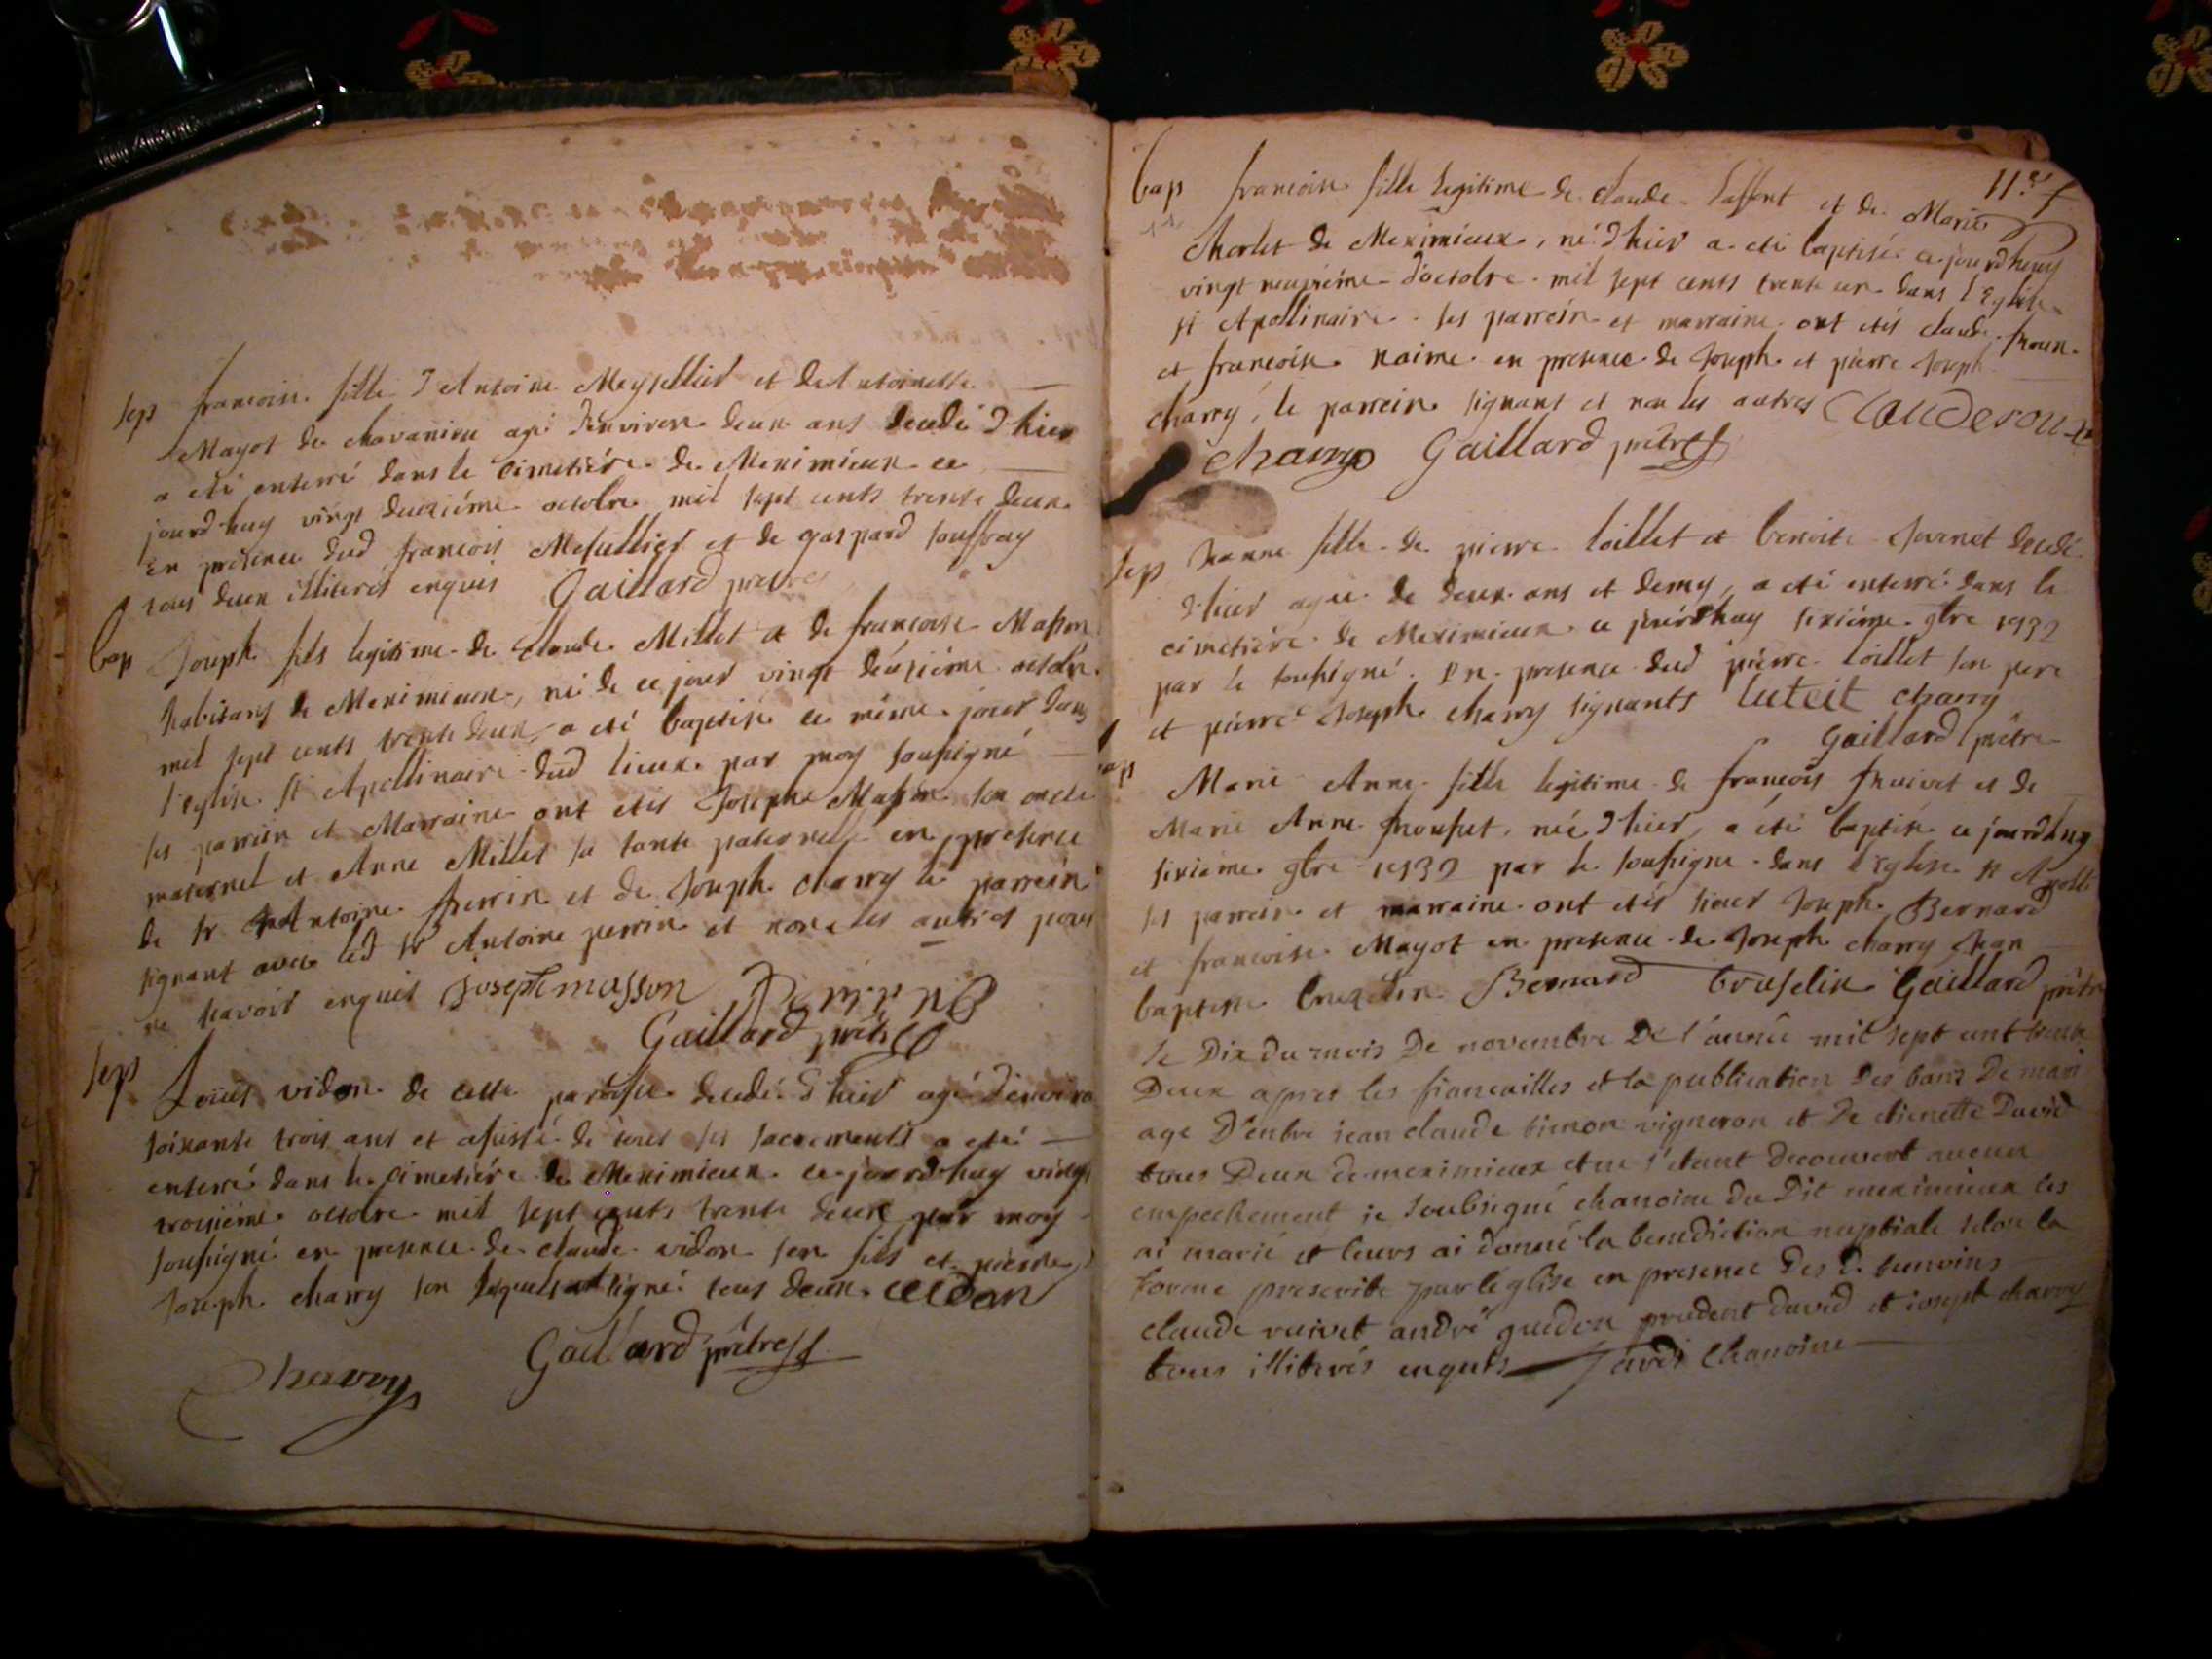 sep francoise fille d'Antoine Meysellier et de Antoinette
Mayot de chavanieu agé d'environ deux ans decedé d'hier
a eté enterré dans le cimetiére de Meximieux ce
jourd'huy vingt deuxiéme octobre mil sept cents trente deux
en presence dud francois et de gaspard
tous deux illiterés enquis Gaillard pretre
bap Joseph fils legitime de claude Millet et de francoise Masson
habitans de Meximieux, né de ce jour vingt deuxiéme octobre
mil sept cents trente deux, a eté baptisé ce même jour dans
l'eglise st Apollinaire dud lieux par moy sousigné
ses parrein et Marraine ont etés Joseph Masson son oncle
maternel et Anne Millet sa tante paternelle en presence
de sr Antoine perrin et de Joseph charry le parrein
signant avec led sr Antoine perrin et non les autres pour
ne scavoir enquis Joseph masson
Gaillard prêtre
sep Loüis vidon de cette paroisse decedé d'hier agé d'environ
soixante trois ans et assisté de tous ses sacrements a eté
enterré dans le cimetiére de Meximieux ce jourd'huy vingt
troisiéme octobre mil sept cents trente deux par moy
sousigné en presence de claude vidon son fils et pierre
Joseph charry son lesquels ont signé tous deux vidon
Gaillard prêtre
charry
bap francoise fille legitime de claude laffont et de Marie
charlet de Meximieux, né d'hier a eté baptisé ce jourd'huy
vingt neuviéme d'octobre mil sept cents trente deux dans l'Eglise
st Apollinaire ses parrein et marraine ont etés claude
et francoise naime en presence de Joseph et pierre Joseph
charry, le parrein signant et non les autres Claude
charry Gaillard prêtre
sep Jeanne fille de pierre loillet et benoite Juenet decedé
d'hier agée de deux ans et demy, a eté enterré dans le
cimetiére de Meximieux ce jourd'huy sixiéme 9bre 1732
par le sousigné en presence dud pierre loillet son pere
et pierre Joseph charry signants charry
Gaillard prêtre
bap Marie Anne fille legitime de francois et de
Marie Anne née d'hier, a été baptisé ce jourd'huy
sixiéme 9bre 1732 par le sousigné dans l'Eglise st Apolli
ses parrein et marraine ont etés sieur Joseph Bernard
et francoise Mayot en presence de Joseph charry Jean
baptiste Bernard bruselin Gaillard prêtre
le Dix du mois De novembre De l'année mil sept cent trente
Deux apres les fiancailles et la publication Des bans De mari
age D'entre jean claude vigneron et De etienette David
tous Deux de meximieux et ne s'etant decouvert aucun
empechement je soubsigné chanoine du Dit meximieux les
ai marié et leurs ai donné la benediction nuptiale selon la
forme prescrite par l'eglise en presence Des temoins
claude ruivet andré guedon prudent david et joseph charry
tous illiterés enquis chanoine